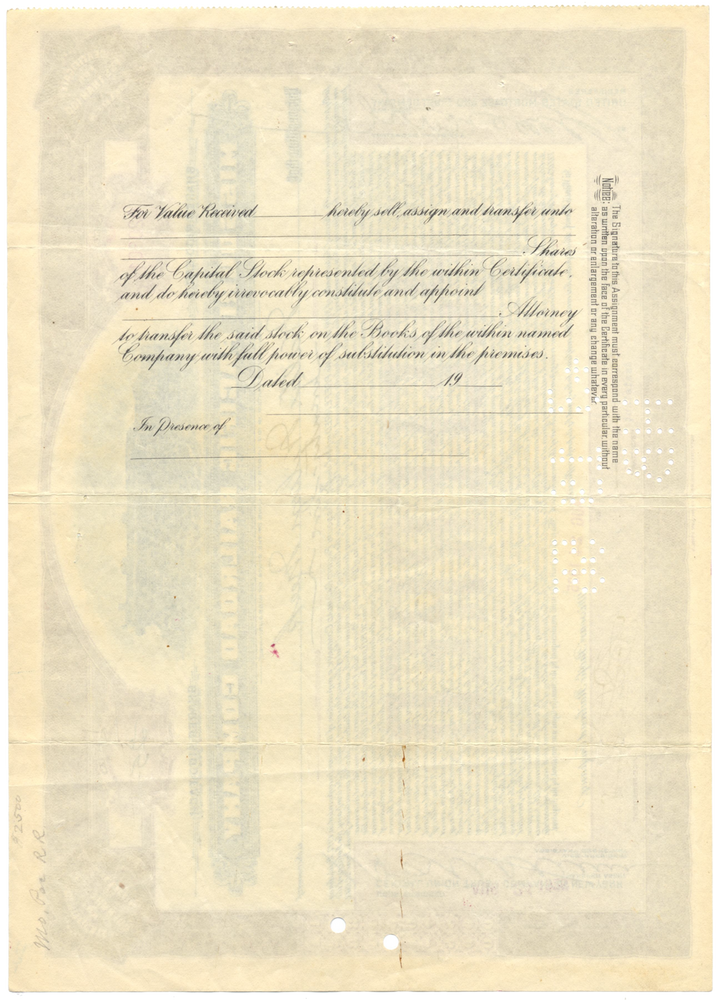 For Value Received hereby sell, assign and transfer unto
Shares
of the Capital Stock represented by the within Certificate,
and do hereby irrevocably constitute and appoint
Attorney
to transfer the said stock on the Books of the within named
Company with full power of substitution in the premises.
Dated 19
In Presence of
Notice: The Signature to this Assignment must correspond with the name
as written upon the face of the Certificate in every particular, without
alteration or enlargement or any change whatever.
RAILROAD COMPANY
$2500
Mo. Pac RR